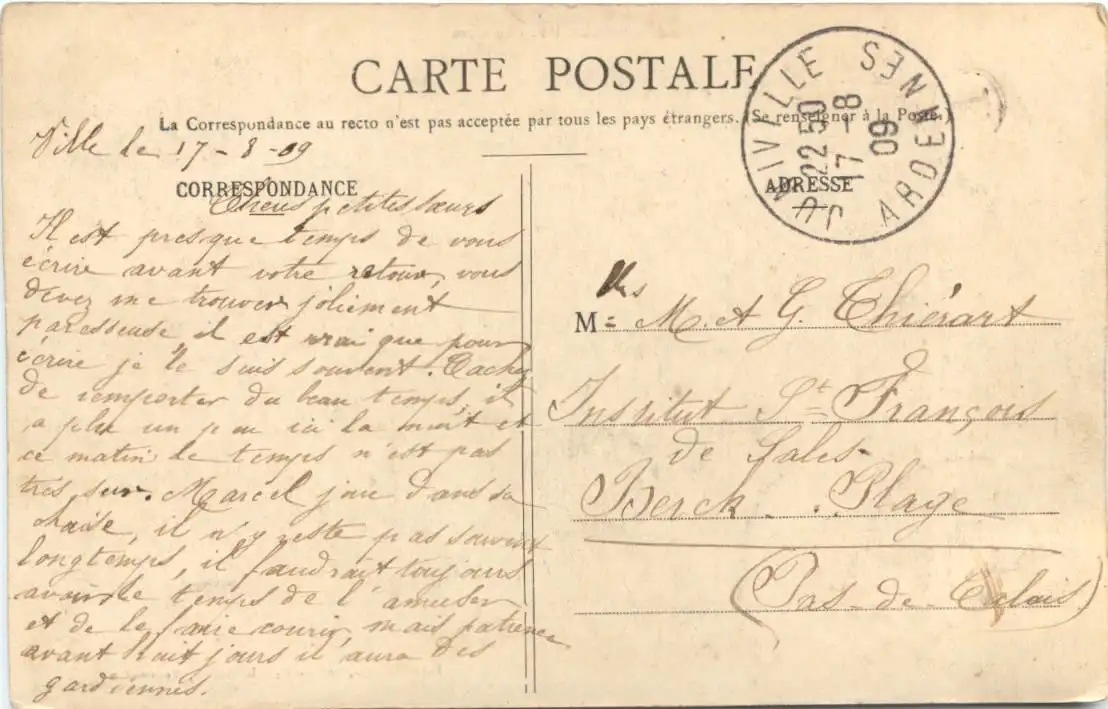 CARTE POSTALE
La Correspondance au recto n'est pas acceptée par tous les pays étrangers. (Se renseigner à la Poste.)
Ville le 17-8-09
CORRESPONDANCE
Chères petites sœurs
Il est presque temps de vous
écrire avant votre retour, vous
devez me trouver joliement
paresseuse il est vrai que pour
écrire je le suis souvent. Tachez
de remporter du beau temps, il
a plu un peu ici la nuit et
ce matin le temps n'est pas
très sur. Marcel joue dans sa
chaise, il n'y reste pas souvent
longtemps, il faudrait toujours
avoir le temps de l'amuser
et de le faire courir, mais patience
avant huit jours il aura des
gardiennes.
JUNIVILLE ARDENNES
22 50
17 -8
09
ADRESSE
M lles M. et G. Thiérart
Institut St François
de Sales
Berck-Plage
(Pas-de-Calais)